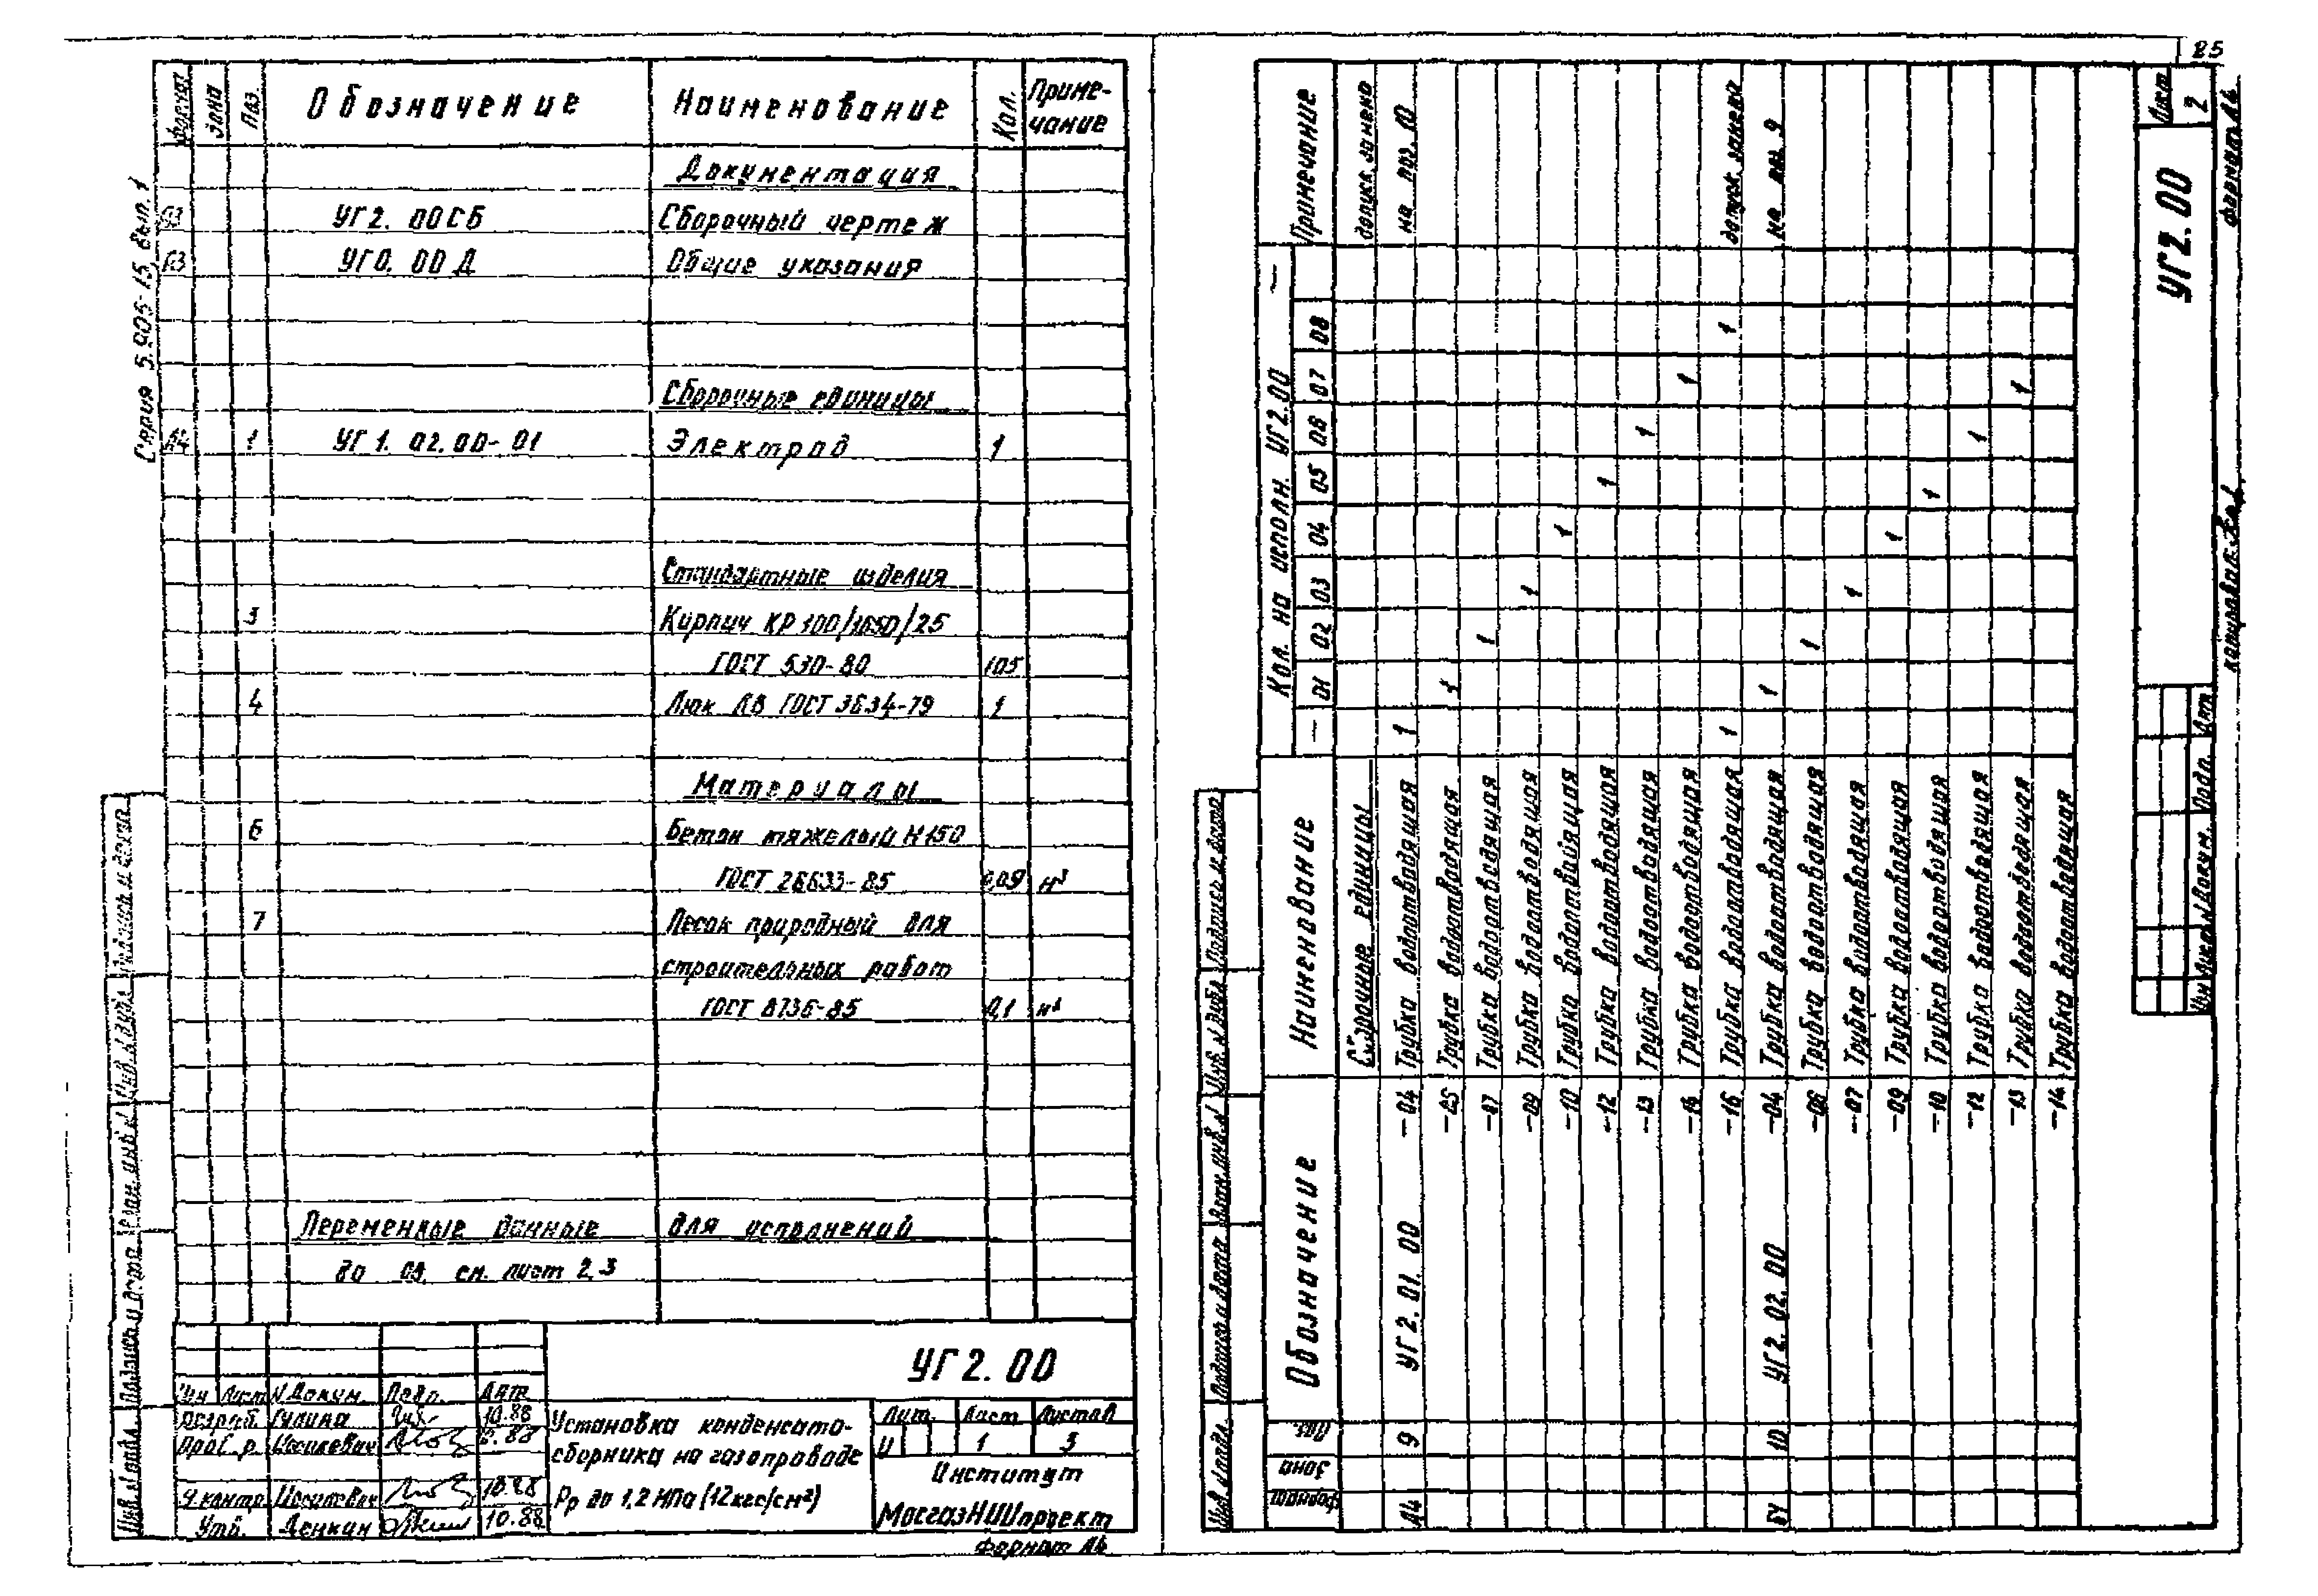 85
Серия 5.905-15 вып. 1
Формат Зона Поз. Обозначение Наименование Кол. Приме-
чание
Документация
А3 УГ2. 00СБ Сборочный чертеж
А3 УГ0. 00 Д Общие указания
Сборочные единицы
А4 1 УГ 1. 02. 00-01 Электрод 1
Стандартные изделия
3 Кирпич КР 100/1650/25
ГОСТ 530-80 105
4 Люк ЛВ ГОСТ 3634-79 1
Материалы
6 Бетон тяжелый М150
ГОСТ 26633-85 0,09 м³
7 Песок природный для
строительных работ
ГОСТ 8736-85 0,1 м³
Переменные данные для исполнений
до 08 см. лист 2,3
УГ2. 00
Изм Лист N Докум. Подп. Дата
Разраб. 10.88
Пров. р. Иоселевич
Н.контр 10.88
Утв. 10.88
Установка конденсато-
сборника на газопроводе
Рр до 1,2 МПа (12кгс/см²)
Лит. Лист Листов
И 1 3
Институт
МосгазНИИпроект
Формат А4
Инв. N подл. Подпись и дата Взам. инв. N Инв. N дубл. Подпись и дата
Формат Зона Поз. Обозначение Наименование Кол. на исполн. УГ2.00 — Примечание
— 01 02 03 04 05 06 07 08
Сборочные единицы допуск. замена
А4 9 УГ 2. 01. 00 -04 Трубка водоотводящая 1 на поз. 10
-05 Трубка водоотводящая 1
-07 Трубка водоотводящая 1
-09 Трубка водоотводящая 1
-10 Трубка водоотводящая 1
-12 Трубка водоотводящая 1
-13 Трубка водоотводящая 1
Трубка водоотводящая 1
-16 Трубка водоотводящая 1 1 допуск. замена
10 УГ2. 02. 00 -04 Трубка водоотводящая 1 на поз. 9
-06 Трубка водоотводящая 1
-07 Трубка водоотводящая 1
-09 Трубка водоотводящая 1
-10 Трубка водоотводящая 1
-12 Трубка водоотводящая 1
-13 Трубка водоотводящая 1
-14 Трубка водоотводящая
Инв. N подл. Подпись и дата Взам. инв. N Инв. N дубл. Подпись и дата
Изм Лист N докум. Подп. Дат
УГ2. 00
Лист
2
Копировал:
Формат А4